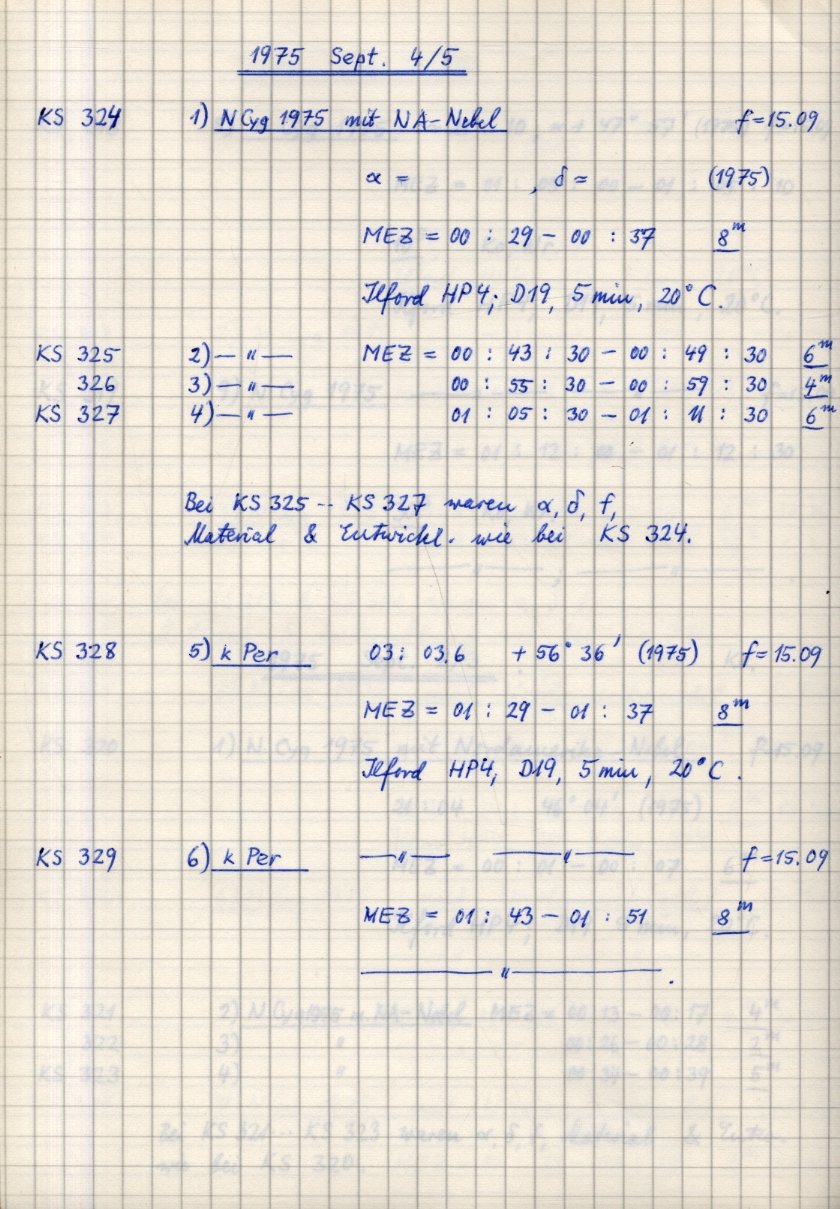 1975 Sept. 4/5
KS 324 1) N Cyg 1975 mit NA-Nebel f=15.09
α = , δ = (1975)
MEZ = 00 : 29 – 00 : 37 8m
Ilford HP4; D19, 5 min, 20°C.
KS 325 2) — " — MEZ = 00 : 43 : 30 – 00 : 49 : 30 6m
326 3) — " — 00 : 55 : 30 – 00 : 59 : 30 4m
KS 327 4) — " — 01 : 05 : 30 – 01 : 11 : 30 6m
Bei KS 325 -- KS 327 waren α, δ, f,
Material & Entwickl. wie bei KS 324.
KS 328 5) k Per 03 : 03.6 + 56° 36' (1975) f=15.09
MEZ = 01 : 29 – 01 : 37 8m
Ilford HP4; D19, 5 min, 20°C.
KS 329 6) k Per — " — — " — f=15.09
MEZ = 01 : 43 – 01 : 51 8m
— " — .